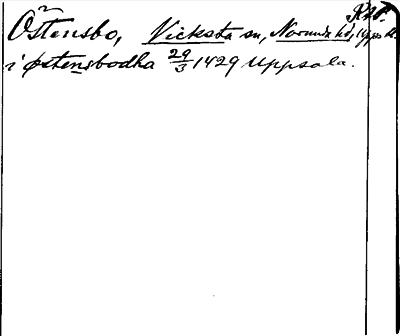 RAP.
Östensbo, Vicksta sn, Norunda hd, Upps. l.
i østensbodha 29/3 1429 Uppsala.